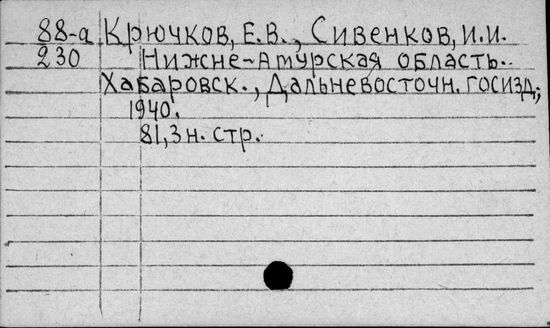 88-а Крючков, Е.В., Сивенков, И.И.
230 Нижне-Амурская область.
Хабаровск., Дальневосточн. госизд,;
1940.
81,3н. стр.